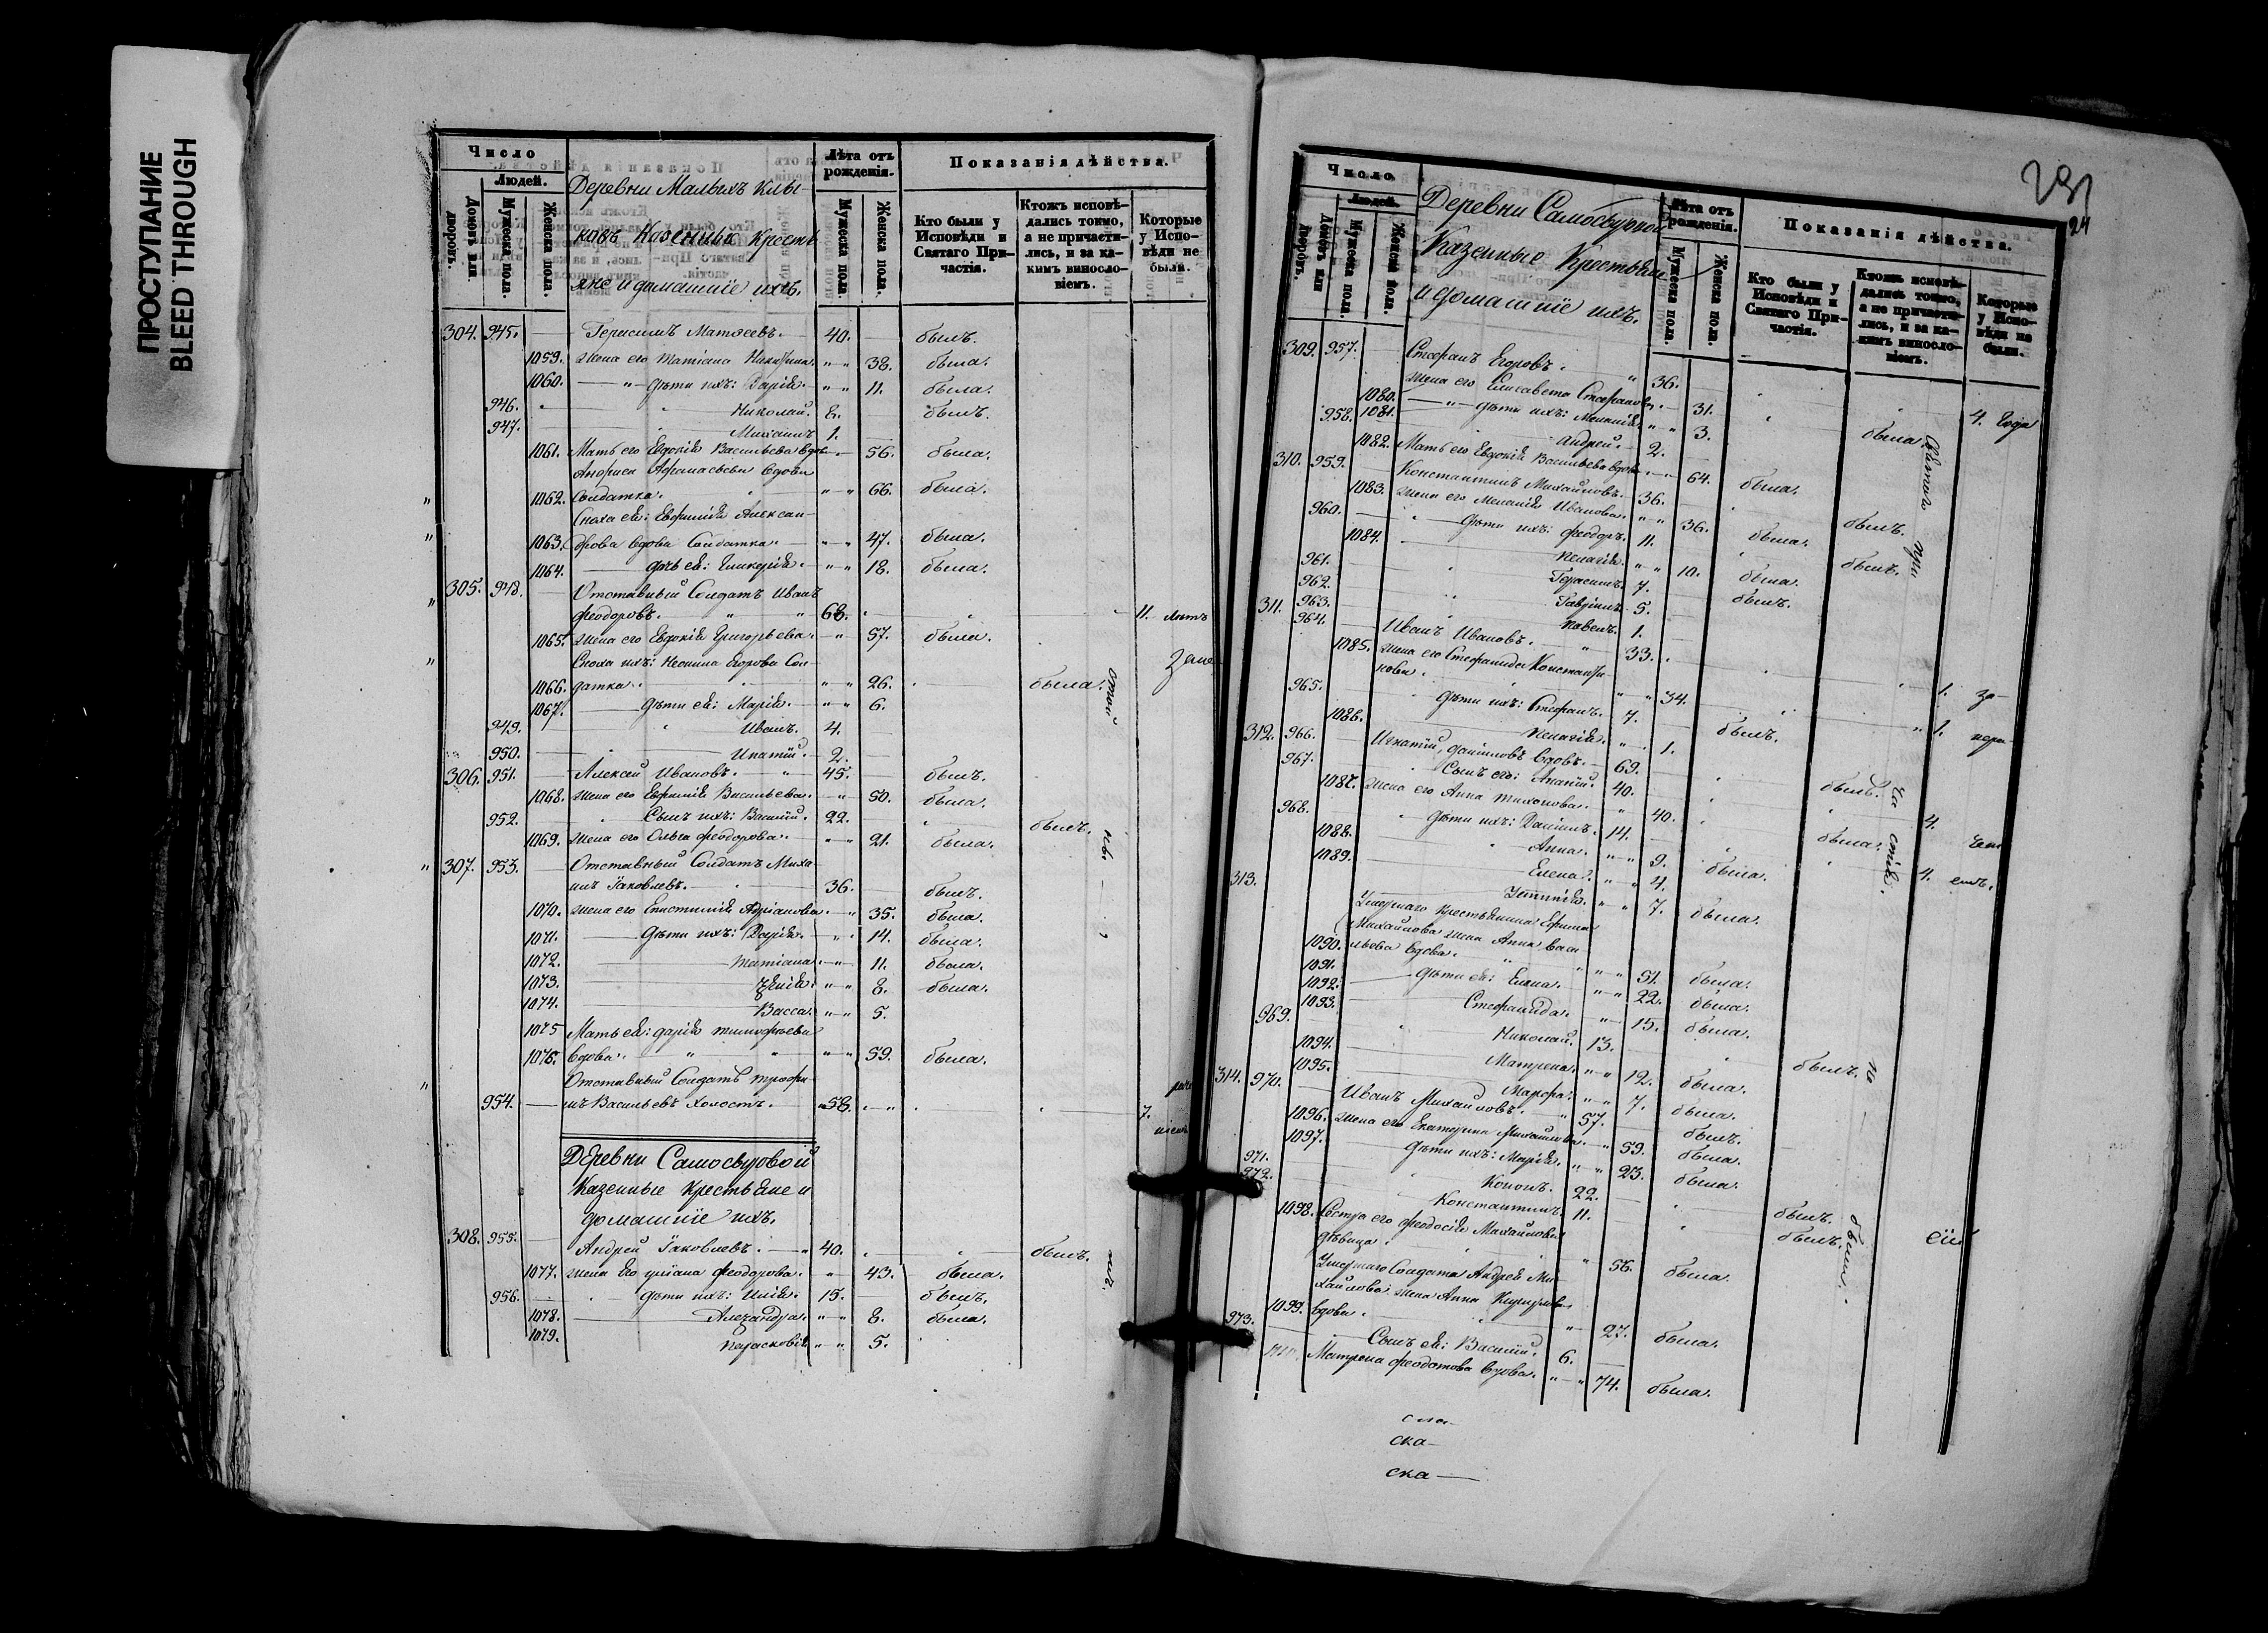 ПРОСТУПАНИЕ
BLEED THROUGH
Число
Людей.
Домовъ или дворовъ.
Мужеска пола.
Женска пола.
Деревни Малыхъ Клы-
ковъ Казенныя Кресть
яне и домашніе ихъ.
Лѣта отъ рожденія.
Мужеска пола.
Женска пола.
Показанія дѣйства.
Кто были у Исповѣди и Святаго Причастія.
Ктожъ исповѣдались токмо, а не причастились, и за какимъ винословіемъ.
Которые у Исповѣди не были.
304. 945. Герасимъ Матѳеевъ. 40. былъ.
1059. жена его Татіана Никифор. 38. была.
1060. дѣти ихъ: Дарія. 11. была.
946. Николай. 8. былъ.
947. Михаилъ 1.
1061. Мать его Евдокія Васильева вдов. 56. была.
Афанасьева вдова
1062. Солдатка. 66. была.
Сноха ея: Евфимія Алексан-
1063. дрова вдова Солдатка. 47. была.
1064. дочь ея: Гликерія. 18. была.
305. 948. Отставный Солдатъ Иванъ
Феодоровъ. 68. 11. лѣтъ
1065. жена его Евдокія Григорьева. 57. была.
Сноха ихъ: Неонила Егорова Сол-
1066. датка. 26. была.
1067. дѣти ея: Марія. 6.
949. Иванъ. 4.
950. Ипатій. 2.
306. 951. Алексей Ивановъ. 45. былъ.
1068. жена его Евфимія Васильева. 50. была.
952. Сынъ ихъ: Василій. 22. былъ.
1069. жена его Ольга Феодорова. 21. была.
307. 953. Отставный Солдатъ Миха-
илъ Іаковлевъ. 36. былъ.
1070. жена его Епистимія Адріанова. 35. была.
1071. дѣти ихъ: Дарія. 14. была.
1072. Татіана. 11. была.
1073. 8. была.
1074. Васса. 5.
1075 Мать ея: Дарія Тимофѣева
1076. вдова. 59. была.
Отставный Солдатъ Трофи-
954. мъ Васильевъ Холостъ. 58. 7.
Деревни Самосыровой
Казенные Крестьяне и
домашніе ихъ.
308. 955. Андрей Іаковлевъ. 40. былъ.
1077. жена его Феодорова. 43. была.
956. дѣти ихъ: Илія. 15. былъ.
1078. Александра. 8. была.
1079. Параскевія 5.
24
Число
Людей.
Домовъ или дворовъ.
Мужеска пола.
Женска пола.
Деревни Самосыровой
Казенные Крестьяне
и домашніе ихъ.
Лѣта отъ рожденія.
Мужеска пола.
Женска пола.
Показанія дѣйства.
Кто были у Исповѣди и Святаго Причастія.
Ктожъ исповѣдались токмо, а не причастились, и за какимъ винословіемъ.
Которые у Исповѣди не были.
309. 957. Стефанъ Егоровъ. 36. 4. года
1080. жена его Елисавета Стефанова 31. была
958. 1081. дѣти ихъ: Меланія. 3.
Андрей. 2.
1082. Мать его Евдокія Васильева вдова 64. была.
310. 959. Константинъ Михайловъ. 36. былъ.
1083. жена его Меланія Иванова. 36. была.
960. дѣти ихъ: Феодоръ. 11. былъ.
1084. Пелагія. 10. была.
961. Герасимъ. 7. былъ.
962. Гавріилъ. 5.
963. Павелъ. 1.
311. 964. Иванъ Ивановъ. 33. 1. за-
1085. жена его Стефанида Константи-
нова. 34. 1.
965. дѣти ихъ: Стефанъ. 7. былъ.
1086. Пелагія. 1.
312. 966. Игнатій Даніиловъ вдовъ. 69. былъ.
967. Сынъ его: Ананій. 40. 4.
1087. жена его Анна Тихонова. 40. была.
968. дѣти ихъ: Даніилъ. 14. 4.
1088. Анна. 9. была.
1089. Елена. 4.
Устинія. 7. была.
313. Умершаго крестьянина Ефима
Михайлова жена Анна Васи-
1090. льева вдова. 51. была.
1091. дѣти ея: Елена. 22. была.
1092. Стефанида. 15. была.
969. 1093. Николай. 13. былъ.
1094. Матрена. 12. была.
1095. Марфа. 7. была.
314. 970. Иванъ Михайловъ. 57. былъ.
1096. жена его Екатерина Михайлова. 59. была.
1097. дѣти ихъ: Марія. 23. была.
971. Кононъ. 22. былъ.
972. Константинъ 11. былъ.
1098. Сестра его Феодосія Михайлова
дѣвица. 56. была.
Умершаго Солдата Андрея Ми-
хайлова жена Анна
1099. вдова. 27. была.
973. Сынъ ея: Василій. 6.
Матрена Феодотова вдова. 74. была.
ска-
ска-